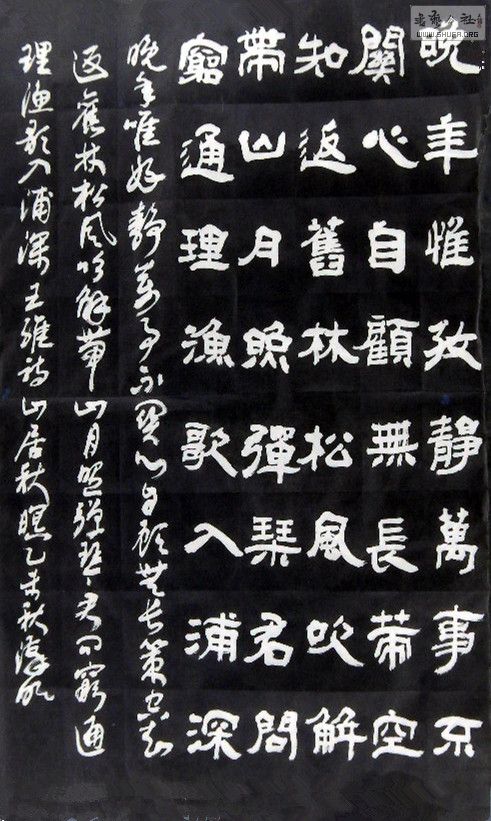 晚年惟好靜萬事不
關心自顧無長策空
知返舊林松風吹解
帶山月照彈琴君問
窮通理漁歌入浦深
晚年唯好靜萬事不關心自顧無長策空知
返舊林松風吹解帶山月照彈琴君問窮通
理漁歌入浦深王維詩山居秋暝乙未秋
書藝公社
WWW.SHUFA.ORG